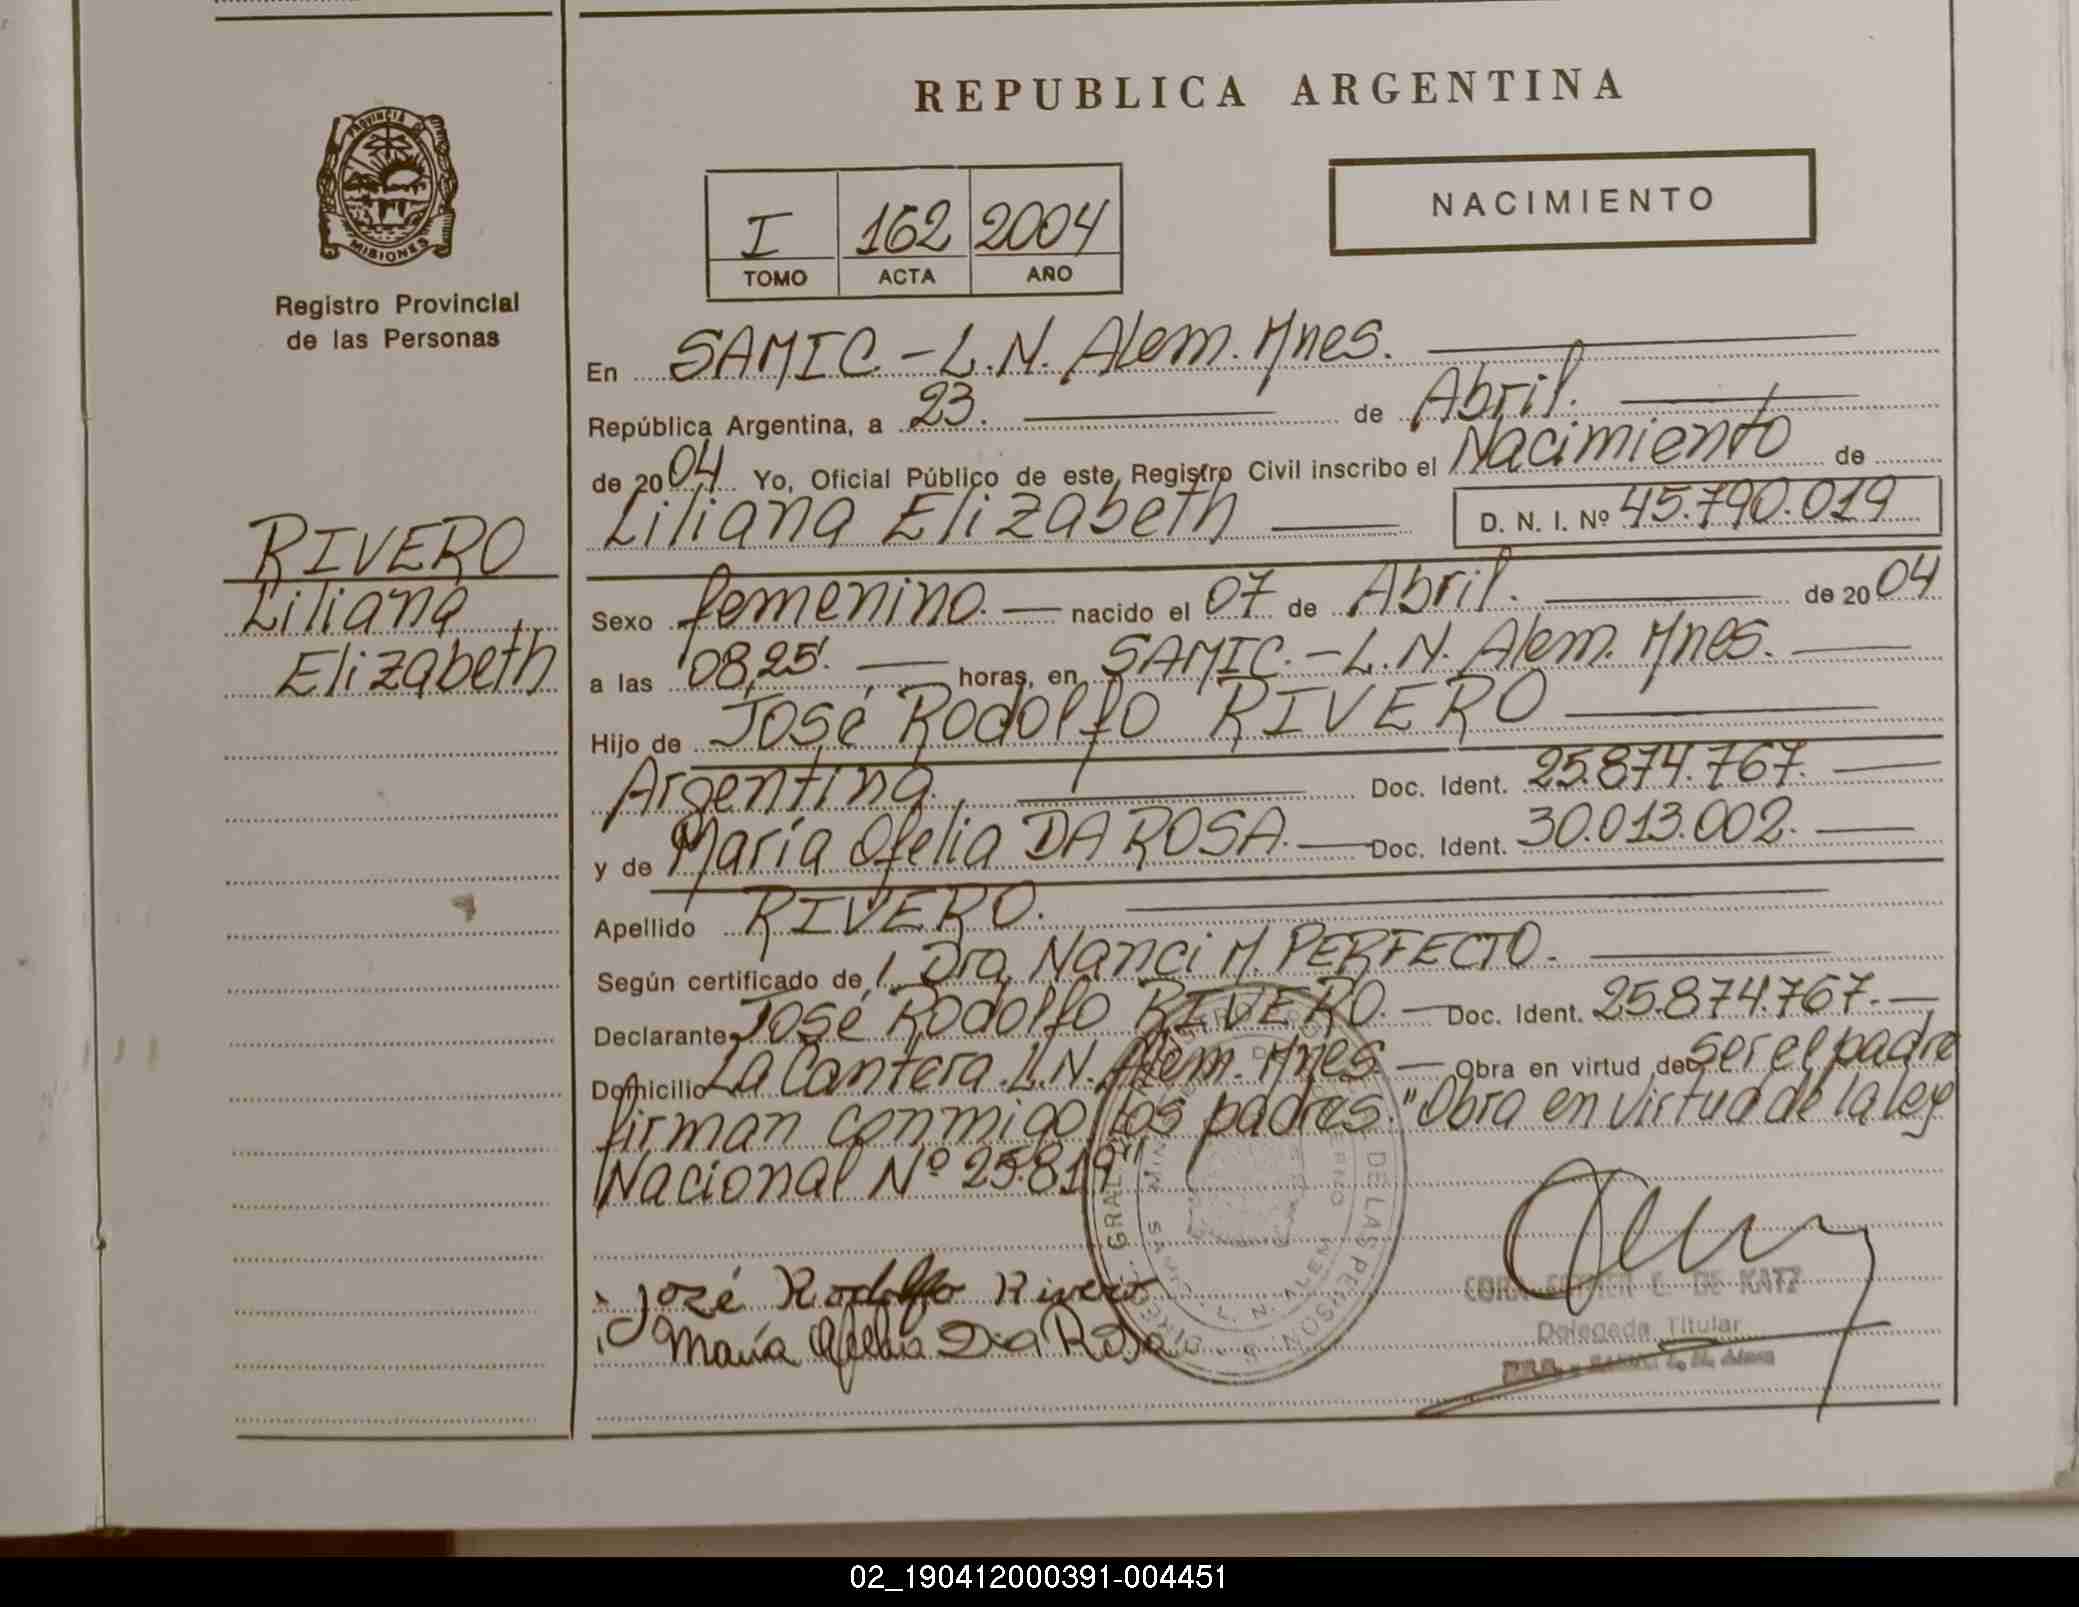 REPUBLICA ARGENTINA
PROVINCIA DE
MISIONES
Registro Provincial
de las Personas
I 162 2004
TOMO ACTA AÑO
NACIMIENTO
RIVERO
Liliana
Elizabeth
En SAMIC - L.N. Alem. Mnes.
República Argentina, a 23. de Abril.
de 2004 Yo, Oficial Público de este Registro Civil inscribo el Nacimiento de
Liliana Elizabeth D. N. I. Nº 45.790.019
Sexo femenino. nacido el 07 de Abril. de 2004
a las 08,25'. horas, en SAMIC.-L.N. Alem. Mnes.
Hijo de José Rodolfo RIVERO
Argentina. Doc. Ident. 25.874.767.
y de María Ofelia DA ROSA. Doc. Ident. 30.013.002.
Apellido RIVERO.
Según certificado de Dra. Nanci M. PERFECTO.
Declarante José Rodolfo RIVERO. Doc. Ident. 25.874.767.
Domicilio La Cantera. L.N. Alem. Mnes. Obra en virtud de ser el padre
firman conmigo los padres. "Obra en virtud de la ley
Nacional Nº 25.819"
José Rodolfo Rivero
María Ofelia Da Rosa
DE LAS PERSONAS
L. N. ALEM
DE KATZ
Delegada Titular
02_190412000391-004451